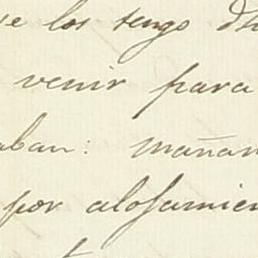 los tengo
venir para
aban: mañan
por alojamien